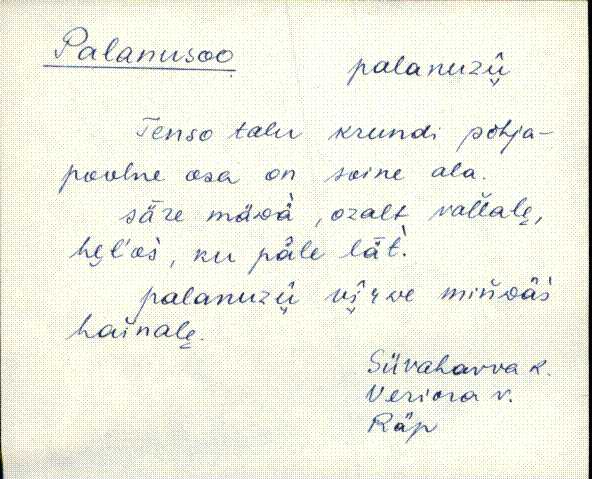 Palanusoo
palanuzū̬
Tenso talu krundi põhja-
poolne osa on soine ala.
säre mäGä̀, ozalt vaĺĺalȩ,
hȩĺoś, ku pǟle lä̀t.
palanuzū̬ vī̬rwe mińnäś
hainalȩ.
Süvahavva k.
Veriora v.
Räp